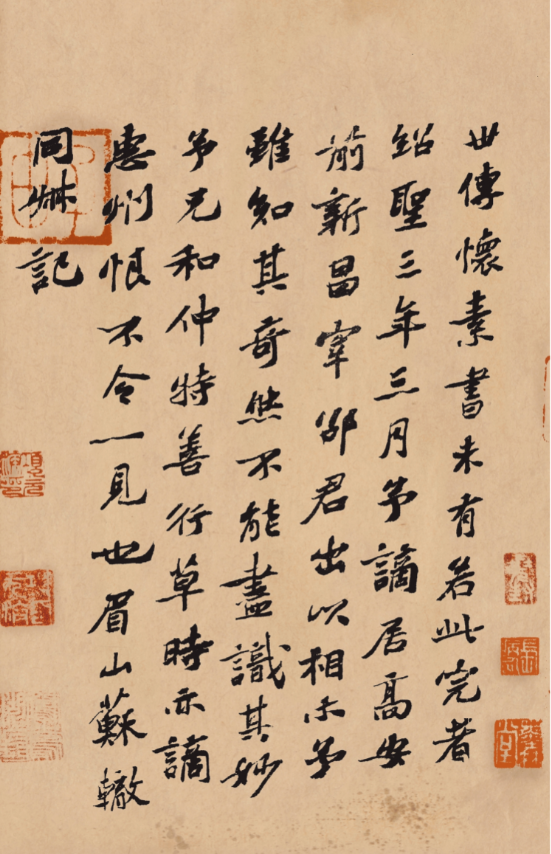 世傳懷素書未有若此完者
紹聖三年三月予謫居高安
前新昌宰邵君出以相示予
雖知其奇然不能盡識其妙
予兄和仲特善行草時亦謫
惠州恨不令一見也眉山蘇轍
同叔記